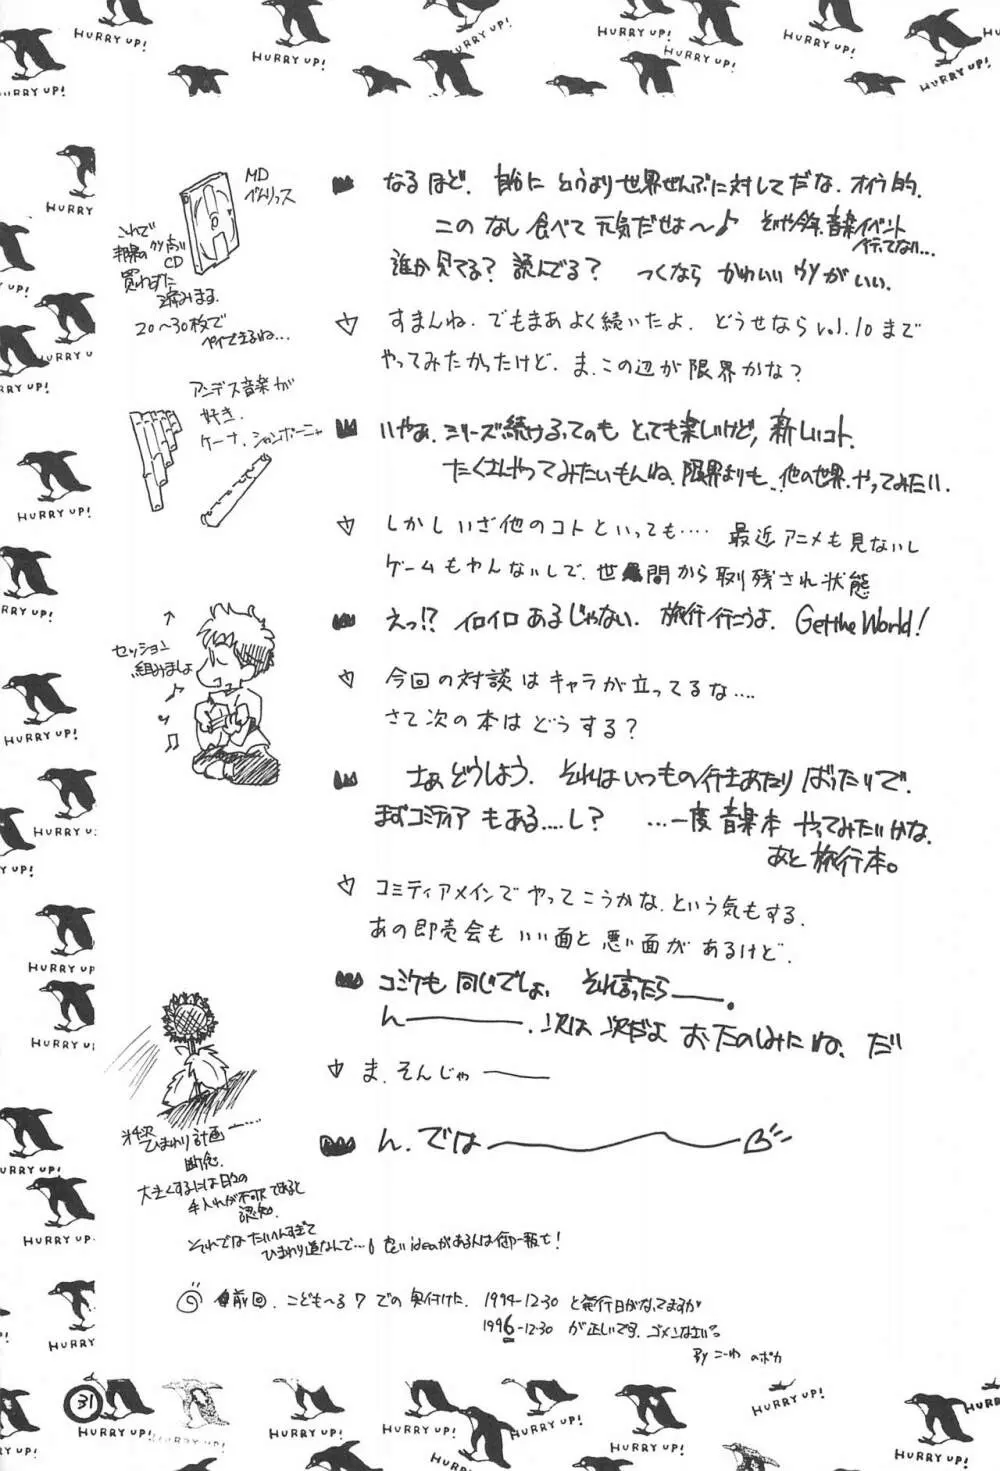 HURRY UP!
HURRY UP!
HURRY UP!
HURRY UP!
HURRY UP!
HURRY UP!
HURRY UP!
HURRY UP!
MD
べんりっス
CD
買わずに
済みまる.
20〜30枚で
ペイできるね...
なるほど. 自分に というより世界ぜんぶに対してだな. オイラ的.
このなし食べて元気だせよ〜♪ そいや今年、音楽イベント
行ってない...
誰か見てる? 読んでる? つくなら かわいいウソがいい.
すまんね. でもまあよく続いたよ. どうせならvol.10まで
やってみたかったけど. ま. この辺が限界かな?
アンデス音楽が
好き.
ケーナ. サンポーニャ
いやぁ. シリーズ続けるってのも とっても楽しいけど, 新しいコト.
たくさんやってみたいもんね. 限界よりも. 他の世界. やってみたい.
しかし いざ他のコトといっても.... 最近アニメも見ないし
ゲームもやんないしで. 世間から取り残され状態
えっ!? イロイロあるじゃない. 旅行行こうよ. Get the World!
セッション
組みましょ
今回の対談はキャラが立ってるな....
さて次の本はどうする?
さぁどうしよう. それはいつもの行きあたりばったりで.
まずコミティアもある....し? ...一度音楽本やってみたいかな.
あと旅行本。
コミティアメインでやってこうかな. という気もする.
あの即売会も いい面と悪い面があるけど.
コミケも同じでしょ. それ言ったら――.
ん――――. 次は次だよ おたのしみにね. だ
ま. そんじゃ ――
ん. では――――
ひまわり計画――....
断念.
大きくするには日々の
手入れが不可欠であると
認知.
それではたいへんすぎて
ひまわり道なんで... ideaがある人は御一報を!
前回. こども〜る7での奥付けた. 1994-12-30 と発行日がなってますが
1996-12-30 が正しいです. ゴメンなさい。
By こーわ のポカ
31
HURRY UP!
HURRY UP!
HURRY UP!
HURRY UP!
HURRY UP!
HURRY UP!
HURRY UP!